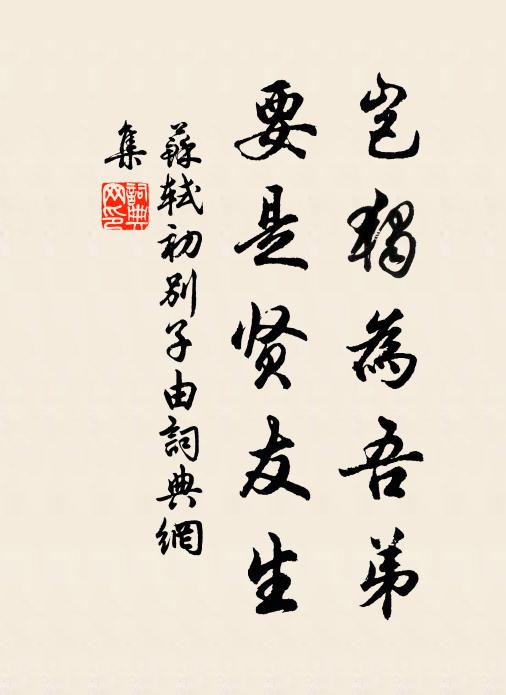 岂獨為吾弟
要是贤友生
蘇軾初別子由詞典網
集
詞典
网印